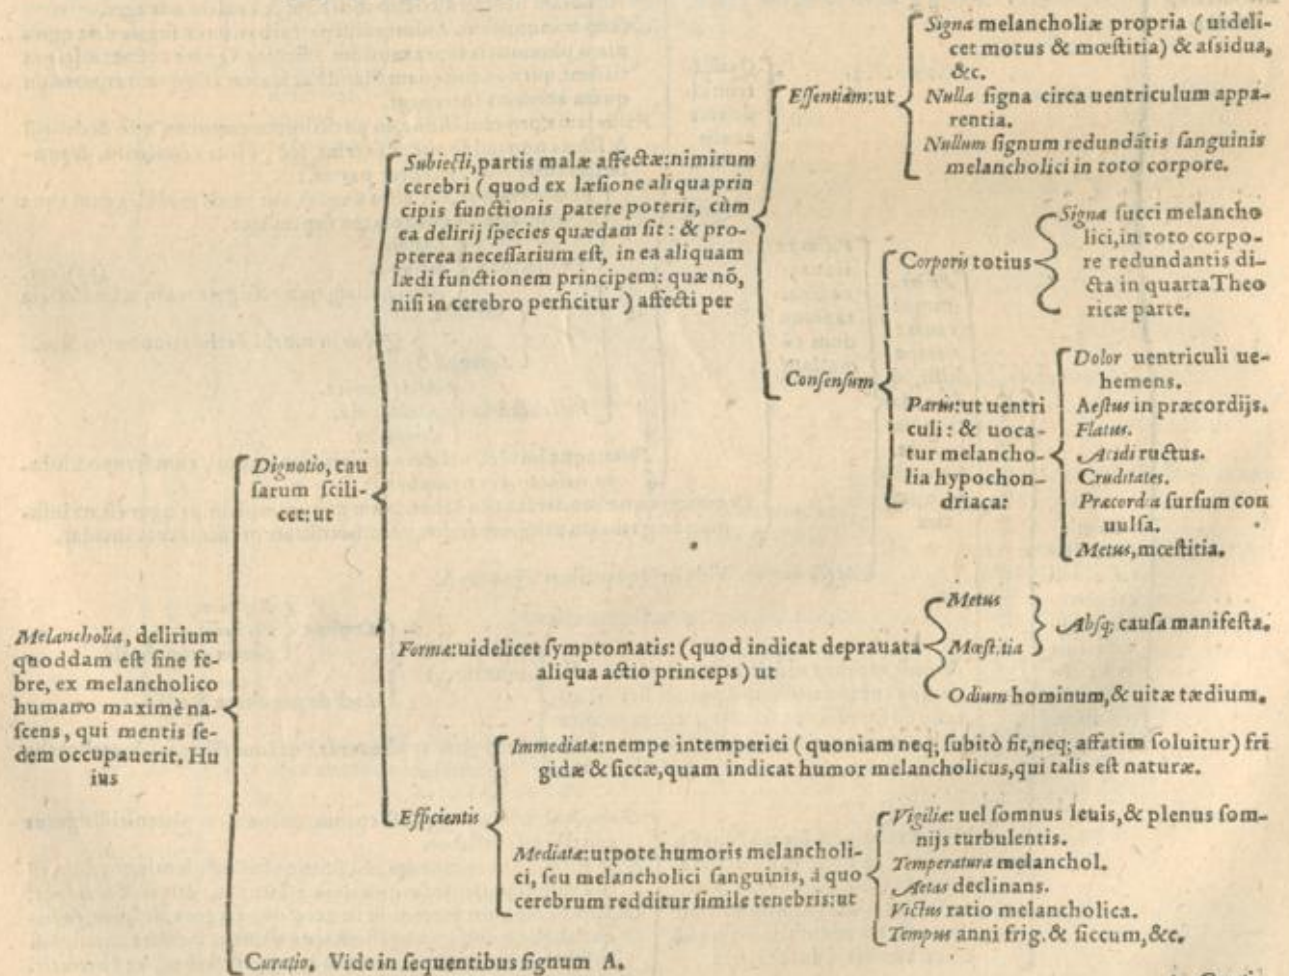 Melancholia, delirium
quoddam est sine fe-
bre, ex melancholico
humano maximè na-
scens, qui mentis se-
dem occupauerit. Hu
ius
Dignotio, cau
sarum scili-
cet: ut
Subiecti, partis malæ affectæ: nimirum
cerebri (quod ex læsione aliqua prin
cipis functionis patere poterit, cùm
ea delirij species quædam sit: & pro-
pterea necessarium est, in ea aliquam
lædi functionem principem: quæ nō,
nisi in cerebro perficitur) affecti per
Essentiam: ut
Signa melancholiæ propria (uideli-
cet motus & mœstitia) & assidua,
&c.
Nulla signa circa uentriculum appa-
rentia.
Nullum signum redundātis sanguinis
melancholici in toto corpore.
Consensum
Corporis totius
Signa succi melancho
lici, in toto corpo-
re redundantis di-
cta in quarta Theo
ricæ parte.
Partis: ut uentri
culi: & uoca-
tur melancho-
lia hypochon-
driaca:
Dolor uentriculi ue-
hemens.
Aestus in præcordijs.
Flatus.
Acidi ructus.
Cruditates.
Præcordia sursum con
uulsa.
Metus, mœstitia.
Formæ: uidelicet symptomatis: (quod indicat deprauata
aliqua actio princeps) ut
Metus
Mœstitia
Absq; causa manifesta.
Odium hominum, & uitæ tædium.
Efficientis
Immediatæ: nempe intemperiei (quoniam neq; subitò fit, neq; affatim soluitur) fri
gidæ & siccæ, quam indicat humor melancholicus, qui talis est naturæ.
Mediatæ: utpote humoris melancholi-
ci, seu melancholici sanguinis, à quo
cerebrum redditur simile tenebris: ut
Vigiliæ: uel somnus leuis, & plenus som-
nijs turbulentis.
Temperatura melanchol.
Aetas declinans.
Victus ratio melancholica.
Tempus anni frig. & siccum, &c.
Curatio. Vide in sequentibus signum A.